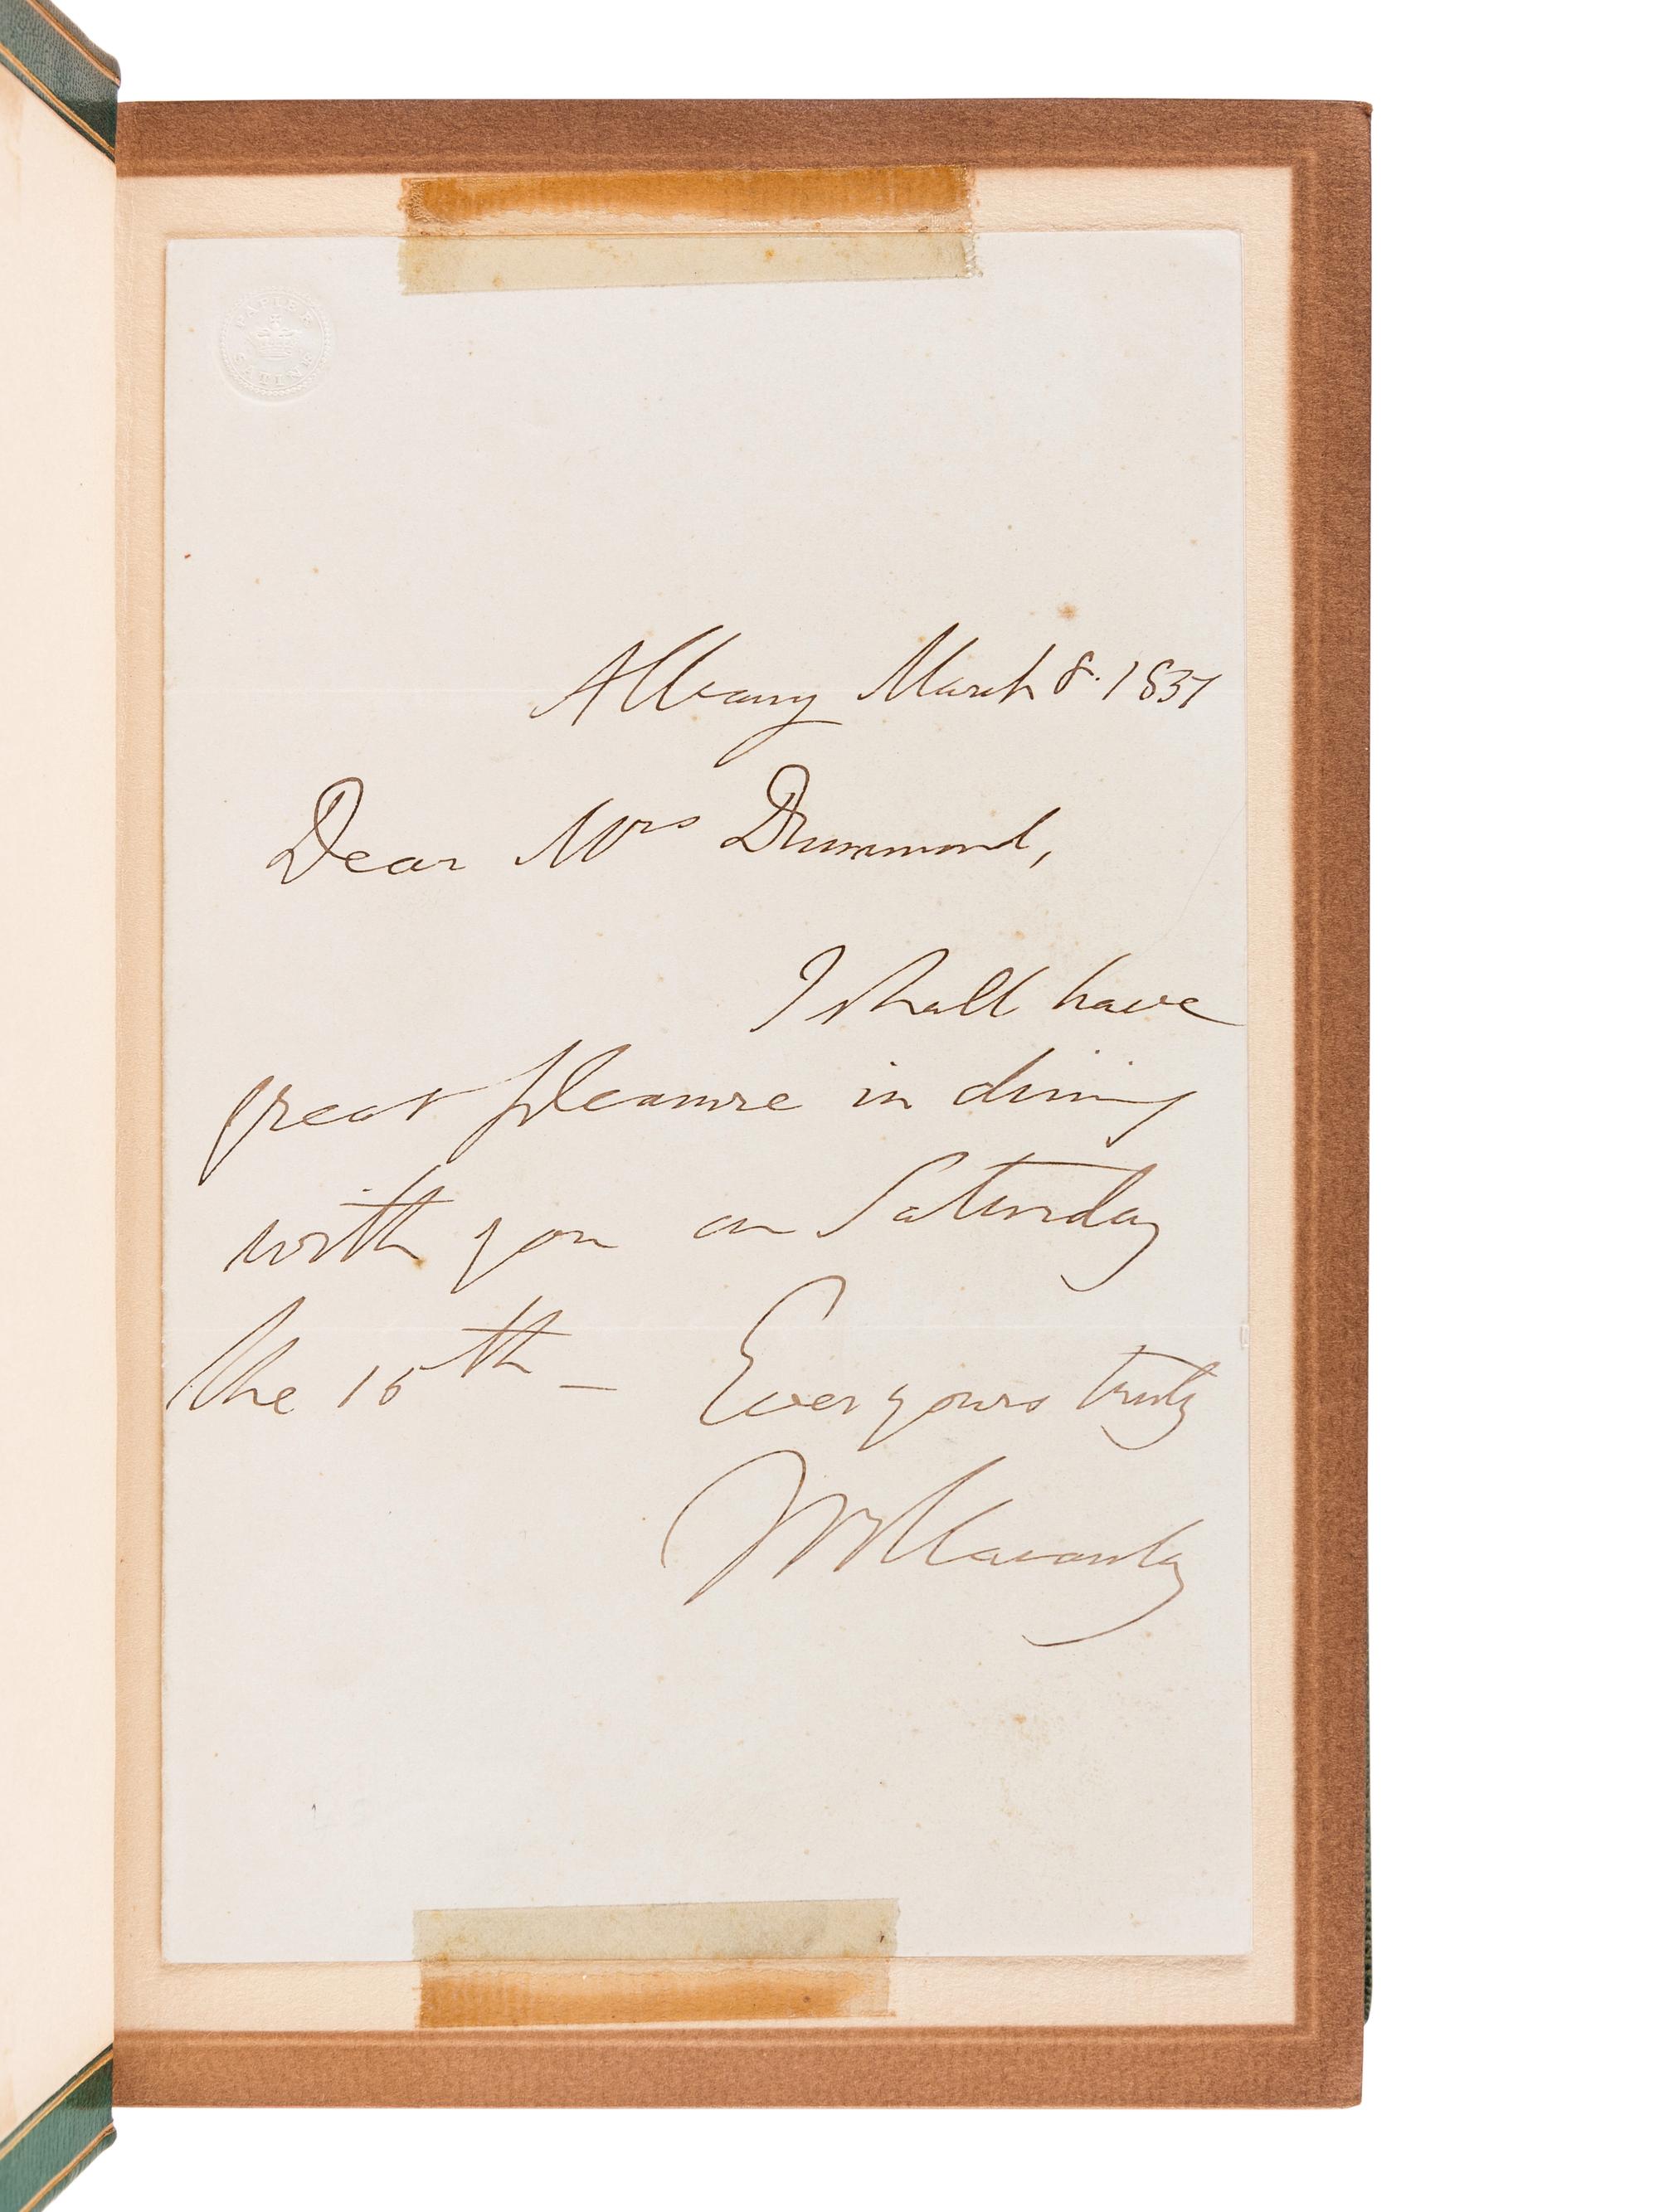 PAPIER
SATINE
Albany March 8. 1851
Dear Mrs Drummond,
I shall have
great pleasure in dining
with you on Saturday
the 15th – Ever yours truly
TBMacaulay